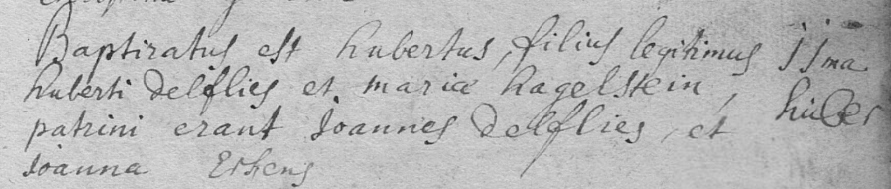 Baptizatus est hubertus, filius legitimus
huberti delflies et mariæ hagelstein,
patrini erant Joannes delflies, et
Joanna
jjma
huber